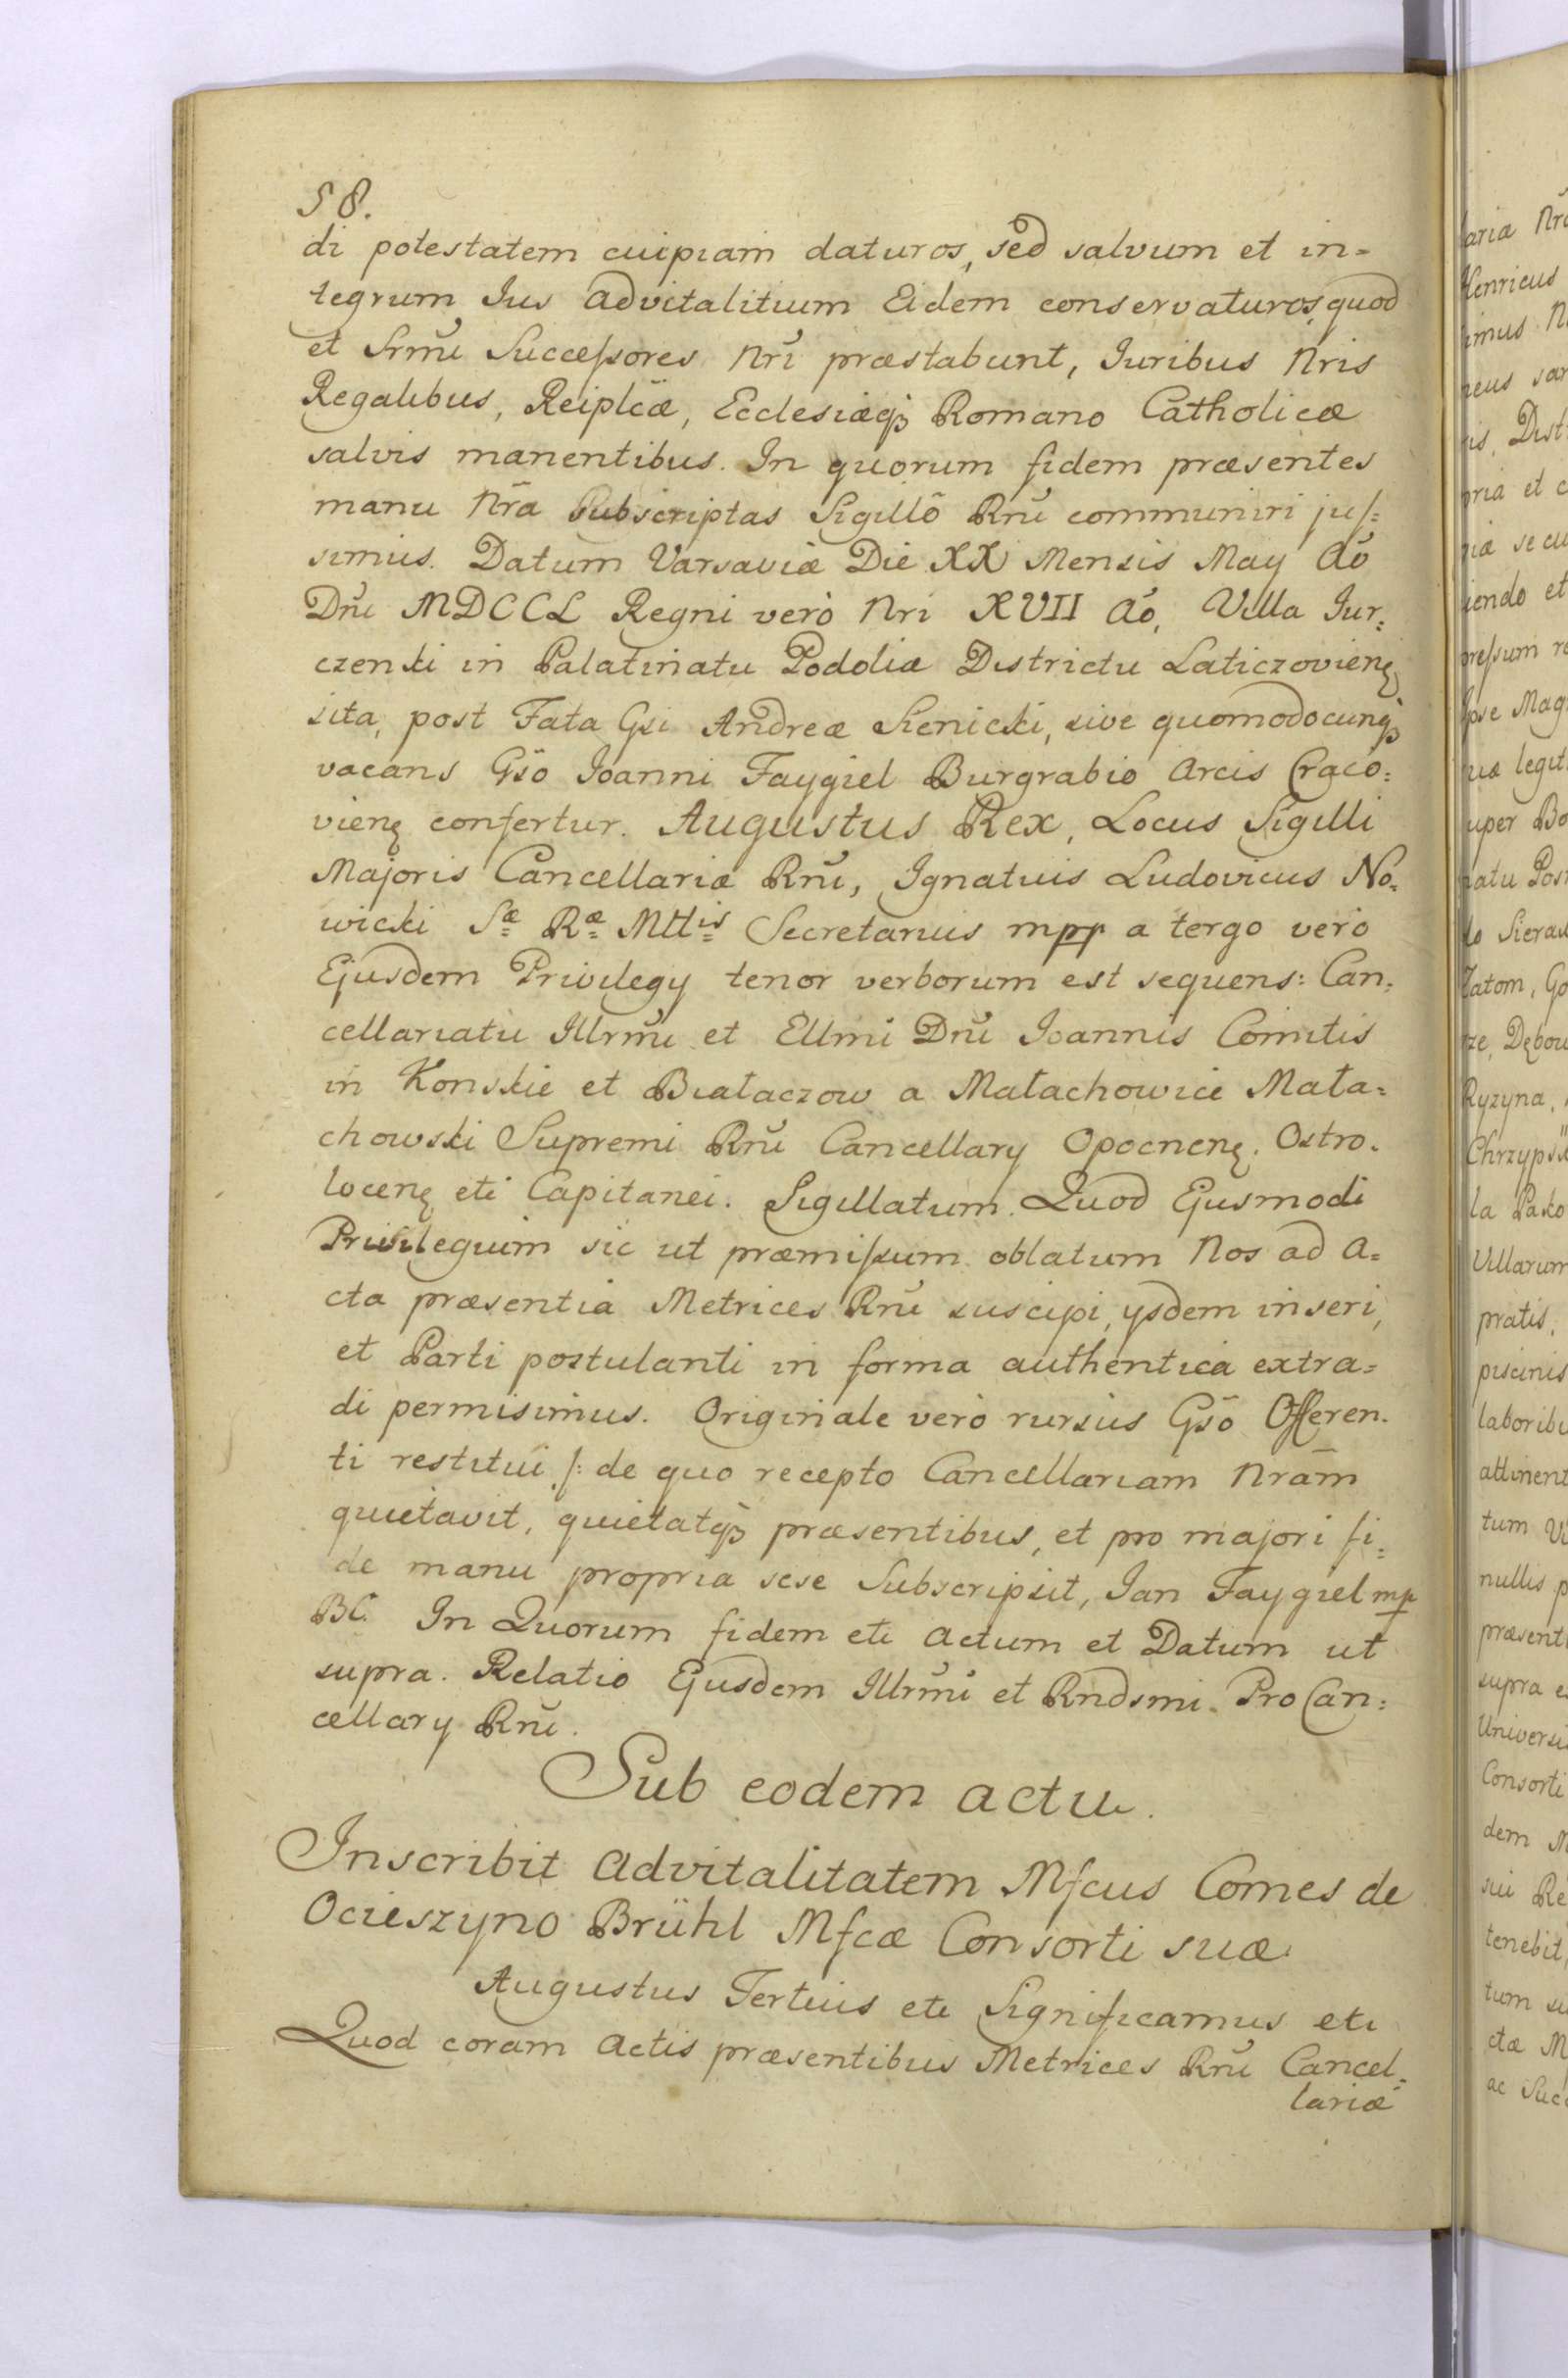 58.
di potestatem cuipiam daturos, sed salvum et in=
tegrum Ius advitalitium Eidem conservaturos, quod
et Srm̃i Succeſsores Nr̃i præstabunt, Iuribus Nris
Regalibus, Reiplcæ, Ecclesiæqꝫ Romano Catholicæ
salvis manentibus. In quorum fidem præsentes
manu Nr̃a Subscriptas Sigillô Rñi communiri juſ=
simus. Datum Varsaviæ Die XX Mensis May Aõ
Dñi MDCCL Regni verò Nri XVII Aõ, Villa Iur=
czenki in Palatinatu Podoliæ Districtu Laticzovienę
sita, post Fata Gsi Andreæ Sienicki, sive quomodocunqꝫ
vacans Gsõ Joanni Faygiel Burgrabio Arcis Craco=
vienę confertur. Augustus Rex, Locus Sigilli
Majoris Cancellariæ Rñi, Ignatius Ludovicus No=
wicki Sæ Ræ Mttis Secretarius mpp a tergo vero
Ejusdem Privilegy tenor verborum est sequens: Can=
cellariatu Illrm̃i et Ellmi Dñi Joannis Comitis
in Konskie et Białaczow a Małachowice Mała=
chowski Supremi Rñi Cancellary Opocnenę. Ostro=
locenę eti Capitanei. Sigillatum. Quod Ejusmodi
Privilegium sic ut præmiſsum oblatum Nos ad A=
cta præsentia Metrices Rñi suscipi, ysdem inseri,
et Parti postulanti in forma authentica extra=
di permisimus. Originale verò rursus Gsõ Offeren=
ti restitui /: de quo recepto Cancellariam Nrãm
quietavit, quietatqꝫ præsentibus, et pro majori fi=
de manu propria sese Subscripsit, Jan Faygiel mp
BC. In Quorum fidem eti Actum et Datum ut
supra. Relatio Ejusdem Illrm̃i et Rndsmi ProCan=
cellary Rñi.
Sub eodem actu.
Inscribit Advitalitatem Mfcus Comes de
Ocieszyno Brühl Mfcæ Consorti suæ
Augustus Tertius eti Significamus eti
Quod coram Actis præsentibus Metrices Rñi Cancel=
lariæ